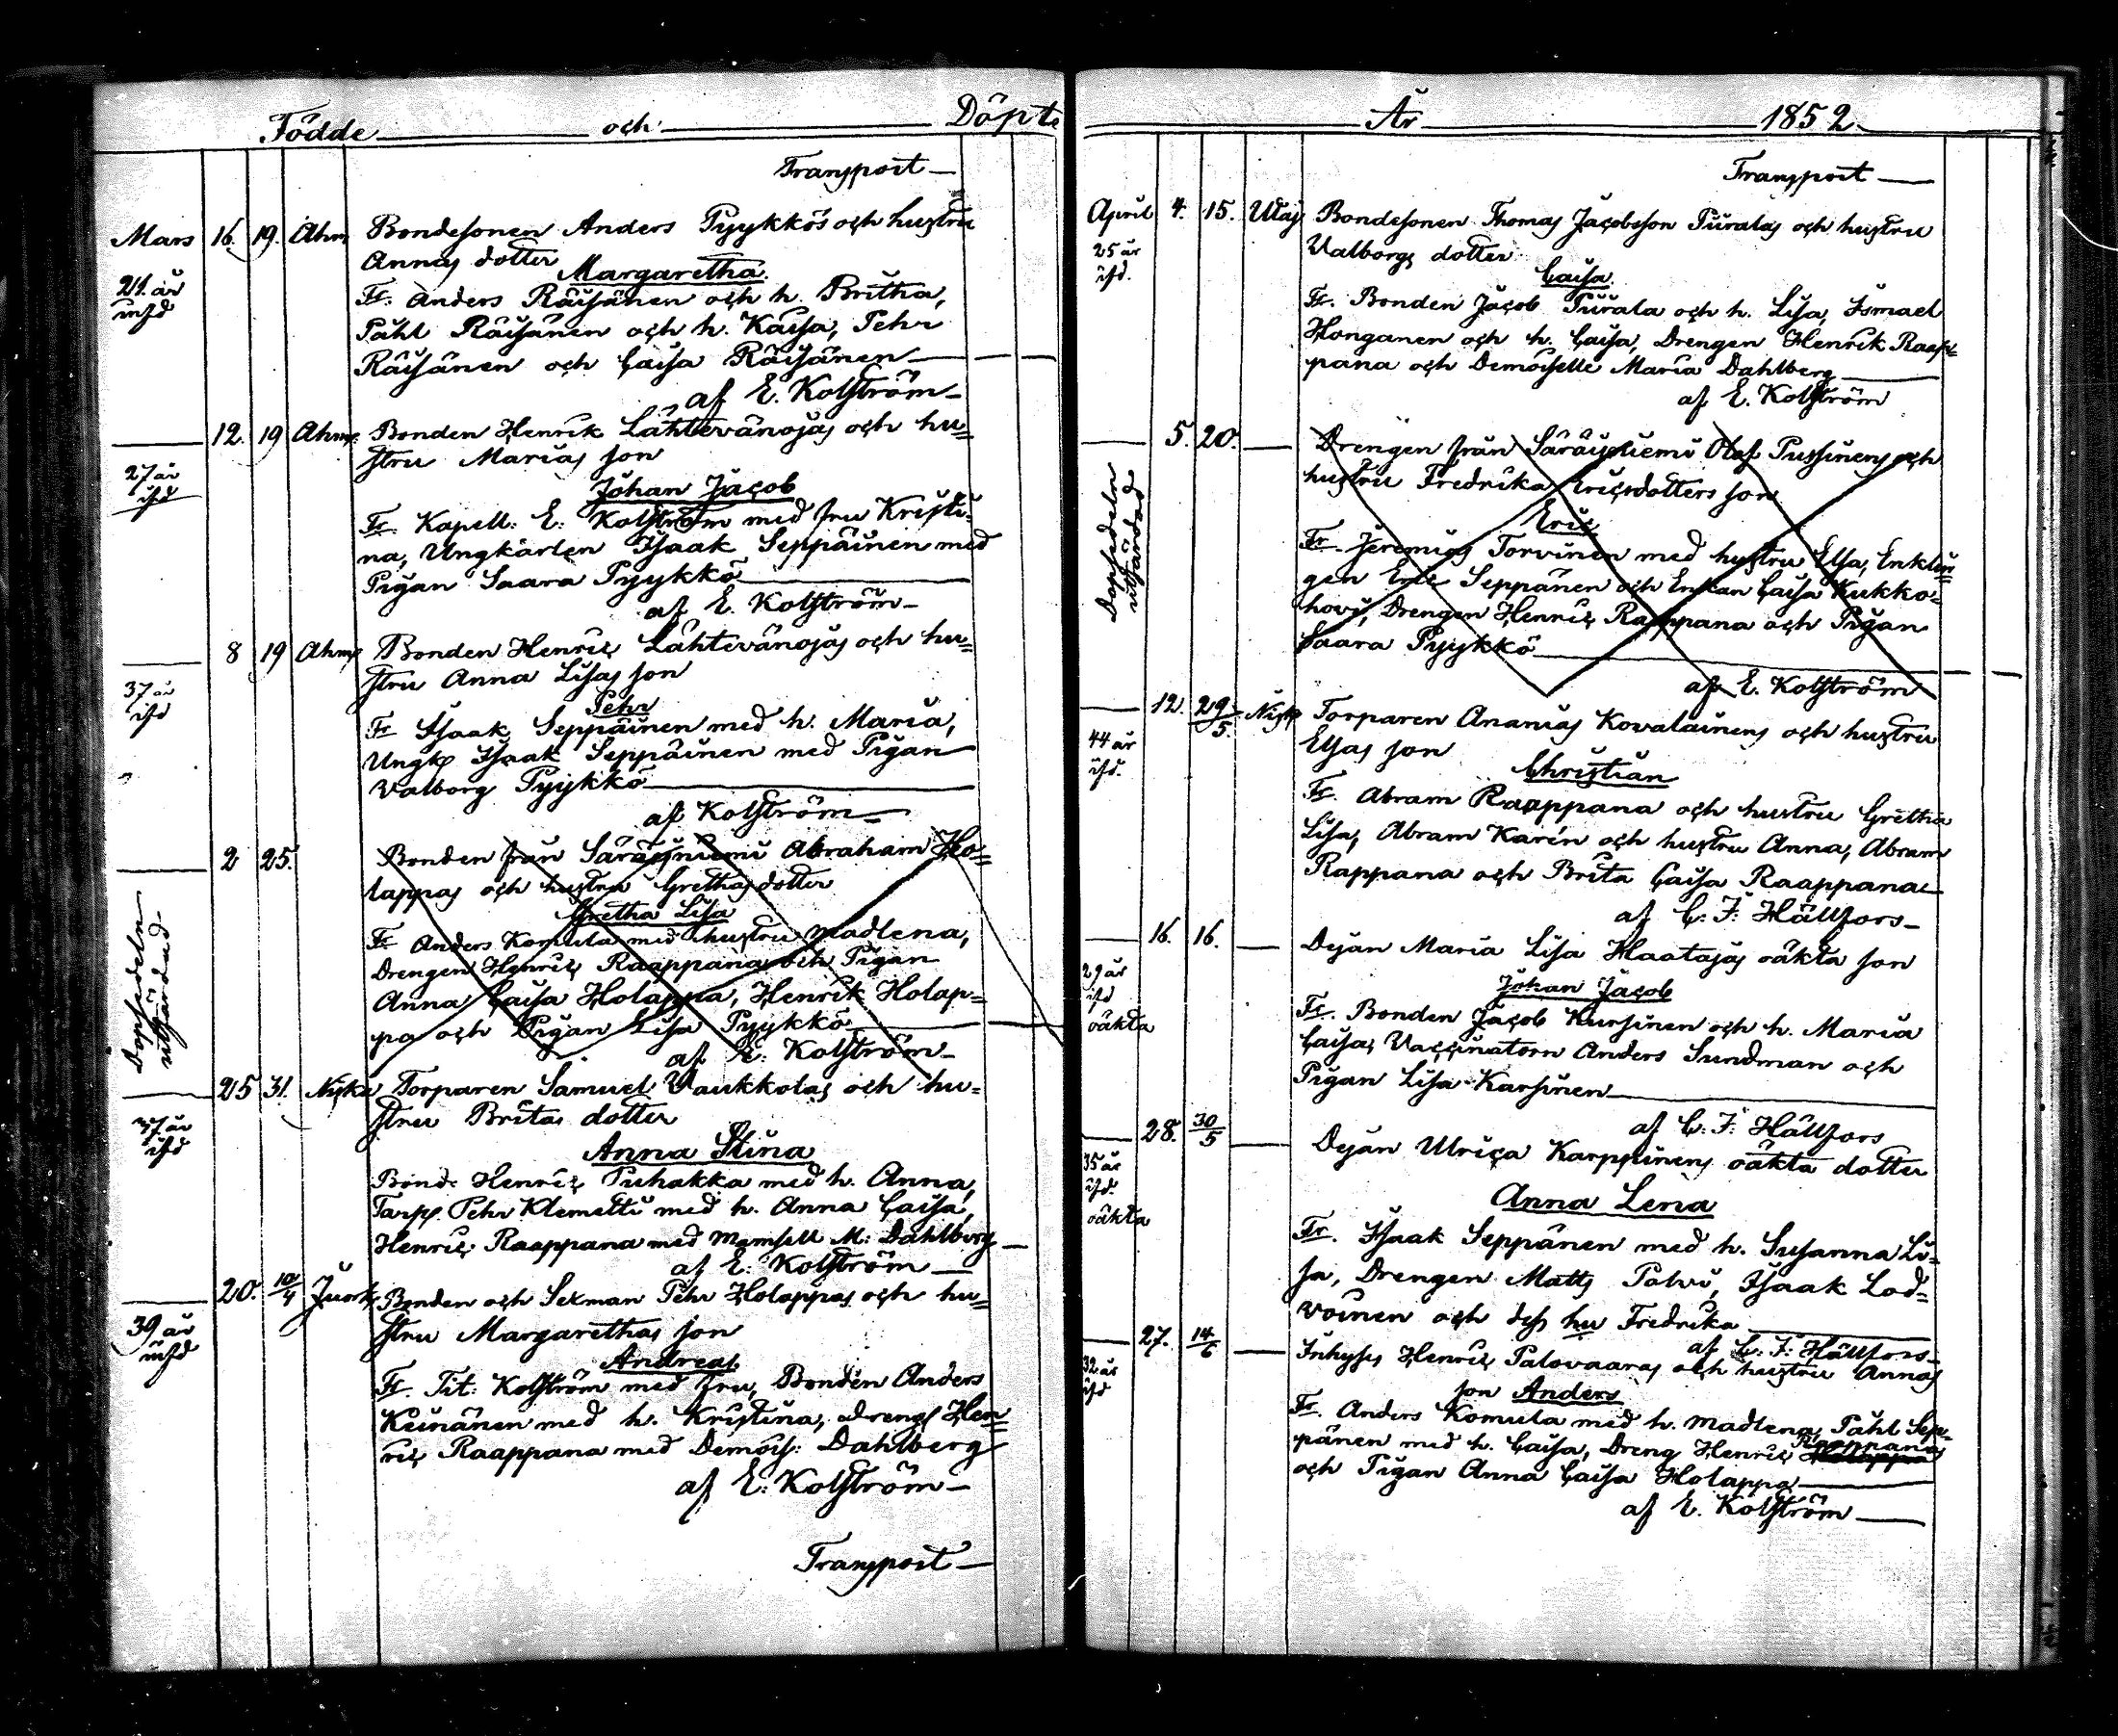 Födde och Döpte
Transport
Mars 16. 19. Ahm. Bondesonen Anders Pyykkös och hustru
Annas dotter
24 år
Margaretha
Fr. Anders Räisänen och h. Britha,
Påhl Räisänen och h. Kaisa, Pehr
Räisänen och Caisa Räisänen
af E. Kolström
12. 19 Ahm. Bonden Henrik Lähtevänojas och hu=
stru Marias son
27 år
Johan Jacob
Fr. Kapell: E: Kolström med fru Kristi-
na, Ungkarlen Isaak Seppäinen med
Pigan Saara Pyykkö
af E. Kolström
8 19 Ahm. Bonden Henric Lähtevänojas och hu=
stru Anna Lisas son
37 år
Pehr
Fr Isaak Seppäinen med h. Maria,
Ungk. Isaak Seppäinen med Pigan
Valborg Pyykkö
af Kolström
2 25. Bonden från Säräisniemi Abraham Ho=
lappas och hustru Grethas dotter
Dopsedeln utfärdad
Gretha Lisa
Fr Anders Komula med hustru Madlena,
Drengen Henric Raappana och Pigan
Anna Caisa Holappa, Henrik Holap=
pa och Pigan Lisa Pyykkö
af E. Kolström
25 31. Niska Torparen Samuel Vaukkolas och hu=
stru Britas dotter
37 år
Anna Stina
Bond. Henric Puhakka med h. Anna,
Torp. Pehr Klemetti med h. Anna Caisa,
Henric Raappana med Mamsell M: Dahlberg
af E: Kolström
20. 10/4 Bonden och Sexman Pehr Holappas och hu=
stru Margarethas son
39 år
Andreas
Fr. Tit: Kolström med fru, Bonden Anders
Keinänen med h. Kristina, Dreng Hen=
ric Raappana med Demois: Dahlberg
af E: Kolström
Transport
År 1852
Transport
April 4. 15. Utaj Bondesonen Thomas Jacobsson Piiralas och hustru
Valborgs dotter
25 år
Caisa
Fr. Bonden Jacob Piirala och h. Lisa, Ismael
Honganen och h. Caisa, Drengen Henrik Raap=
pana och Demoiselle Maria Dahlberg
af E. Kolström
5. 20. Drengen från Säräisniemi Olof Pussinens och
hustru Fredrika Ericsdotters son
Dopsedeln utfärdad
Eric
Fr. Jeremias Torvinen med hustru Elsa, Enklin=
gen Eric Seppänen och Enkan Caisa Kukko=
hovi, Drengen Henric Rappana och Pigan
Saara Pyykkö
af E. Kolström
12. 29/5. Nisk Torparen Ananias Kovalainens och hustru
Elsas son
44 år
Christian
Fr. Abram Raappana och hustru Gretha
Lisa, Abram Karén och hustru Anna, Abram
Rappana och Brita Caisa Raappana
af C: F: Hällfors
16. 16. Dejan Maria Lisa Haatajas oäkta son
29 år
oäkta
Johan Jacob
Fr. Bonden Jacob Kursinen och h. Maria
Caisa, Vaccinatorn Anders Sundman och
Pigan Lisa Karsinen
af C: F: Hällfors
28. 30/5 Dejan Ulrica Karppinens oäkta dotter
35 år
oäkta
Anna Lena
Fr. Isaak Seppänen med h. Susanna Li-
sa, Drengen Matts Palvi, Isaak Lod=
voinen och dess hu Fredrika
af C: F: Hällfors
27. 14/6 Inhyses Henric Palovaaras och hustru Annas
32 år
son Anders
Fr. Anders Komula med h. Madlena, Påhl Sep-
pänen med h. Caisa, Dreng Henric Raappana
och Pigan Anna Caisa Holappa
af E. Kolström